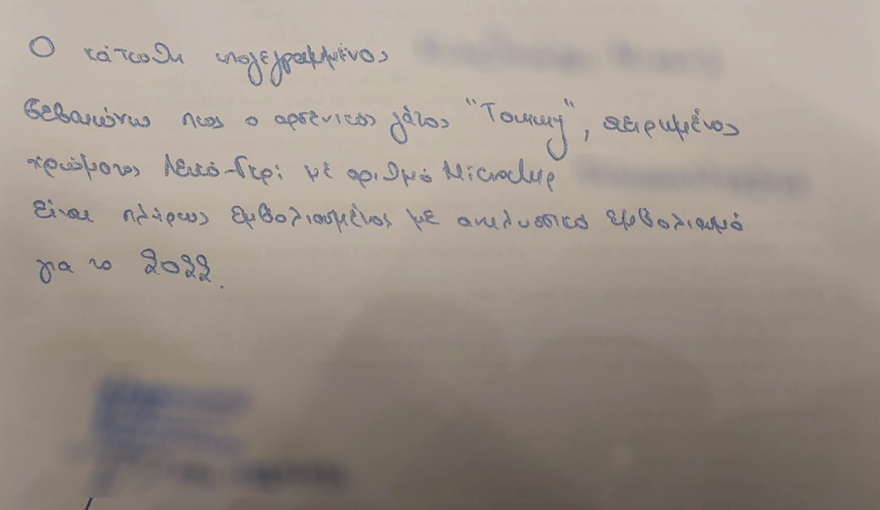 Ο κάτωθι υπογεγραμμένος
βεβαιώνω πως ο αρσενικός γάτος "Tommy", στειρωμένος
χρώματος Λευκό-Γκρι με αριθμό Microchip
είναι πλήρως εμβολιασμένος με αντιλυσσικό εμβολιασμό
για το 2022.